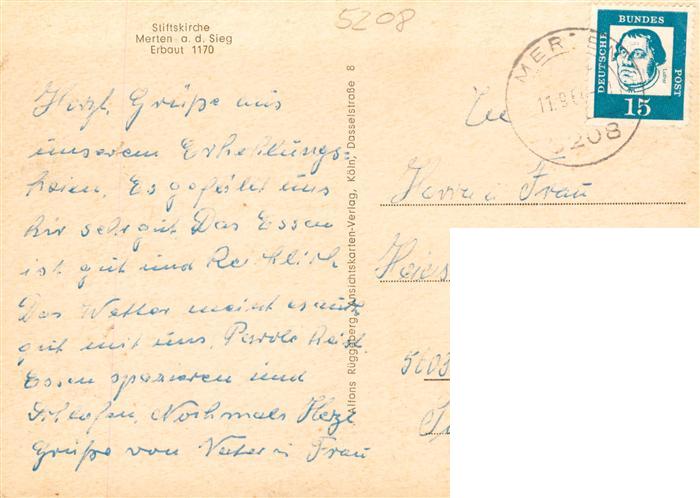 5208
Stiftskirche
Merten a. d. Sieg
Erbaut 1170
Herzl. Grüße aus
unserem Erhollungs=
heim. Es gefählt uns
hir sehr gut Das Essen
ist gut und Reichlich
Das Wetter meint es auch
gut mit uns. Parole heist
Essen spazieren und
Schlafen. Nochmals Herzl.
Grüße von Vater u Frau
Alfons Rüggeberg, Ansichtskarten-Verlag, Köln, Dasselstraße 8
MERTEN
11.9.6
5208
DEUTSCHE BUNDES POST
Luther
15
Herrn u Frau
5603